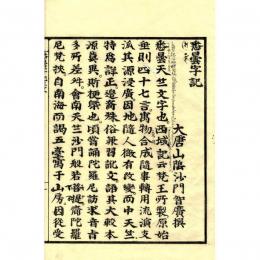 悉曇字記
大唐山陰沙門智廣撰
悉曇天竺文字也西域記云梵王所製原始
垂則四十七言寓物合成隨事轉用流演支
派其源浸廣因地隨人微有改變而中天竺
特為詳正邊裔殊俗兼習訛文語其大較本
源莫異斯梗槩也頃嘗誦陀羅尼訪求音旨
多所差舛會南天竺沙門般若菩提齎陀羅
尼梵挾自南海而謁五臺寓于山房因從受